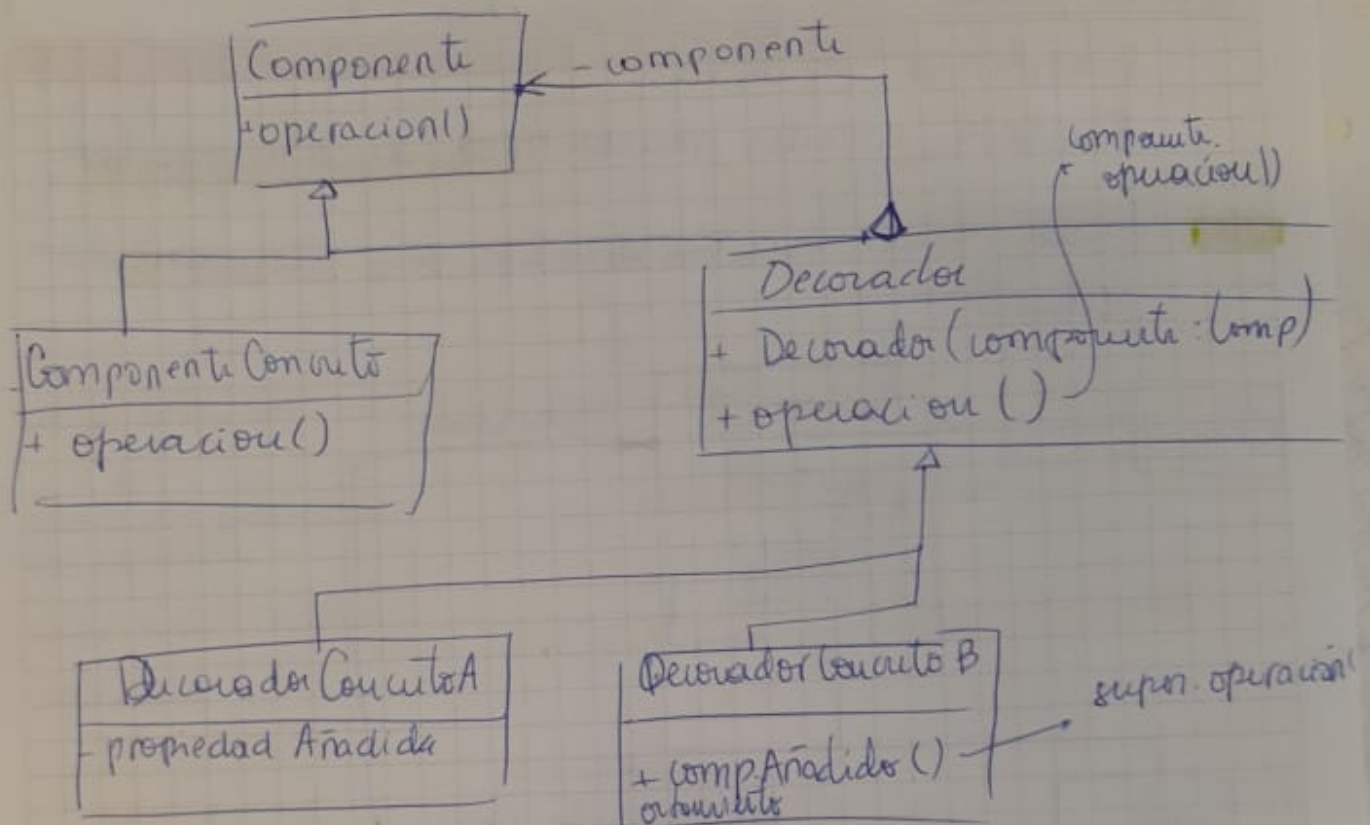 Componente
+operacion()
- componente
componente.
operacion()
Decorador
+ Decorador (componente : Comp)
+ operacion ()
Componente Concreto
+ operacion()
Decorador Concreto A
- propiedad Añadida
Decorador Concreto B
+ comp.Añadido ()
ortamiento
super. operación(